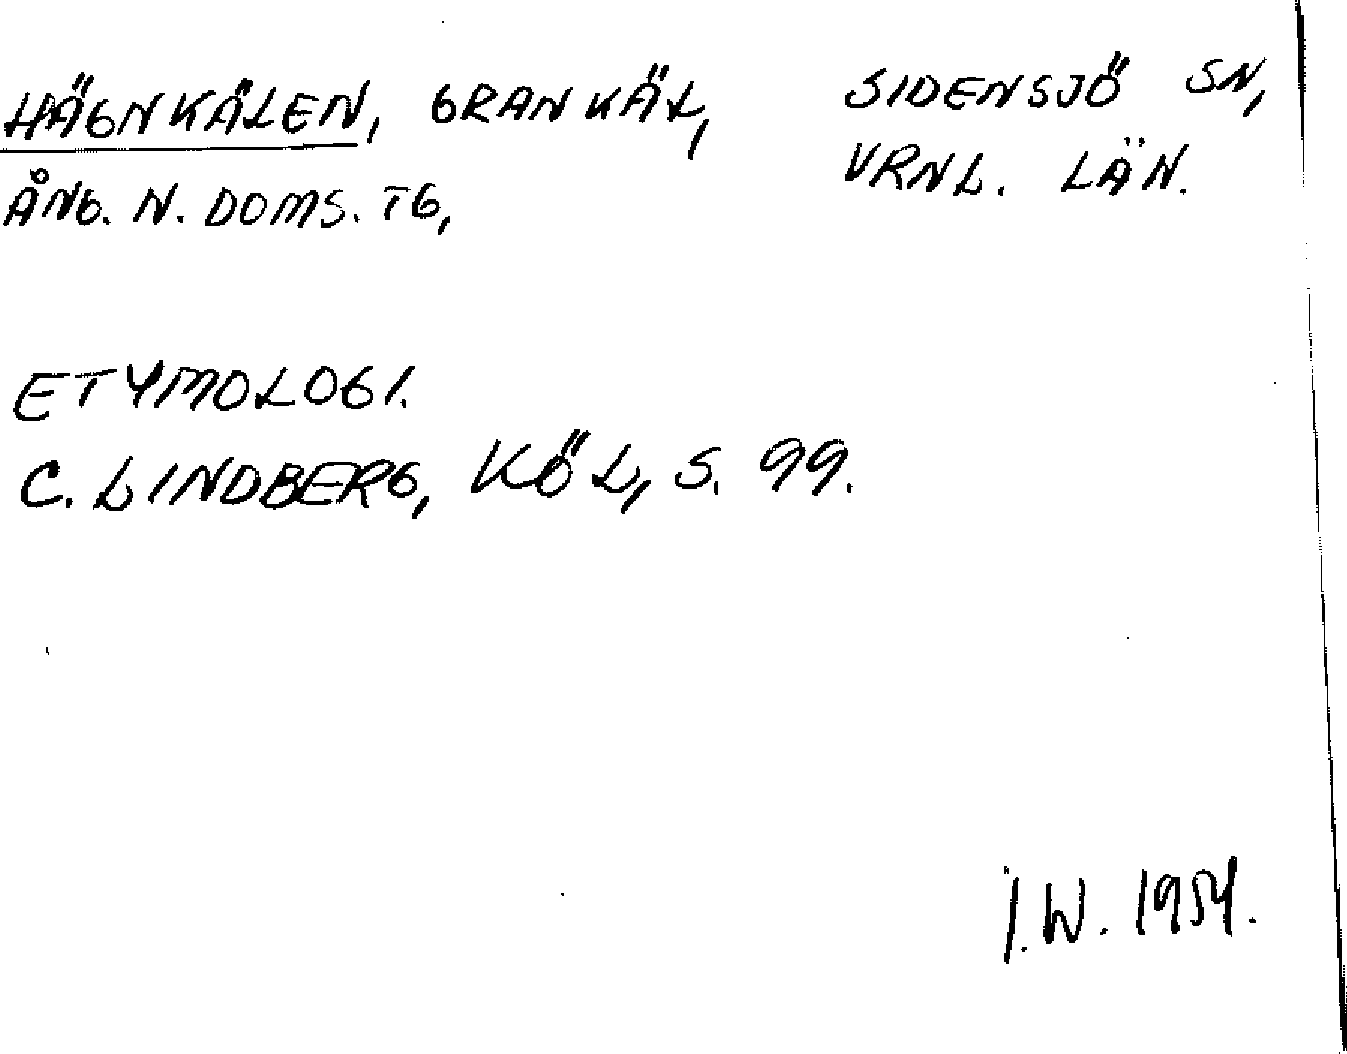 HÄGNKÄLEN, GRANKÄL, SIDENSJÖ SN,
ÅNG. N. DOMS. TG, VRNL. LÄN.
ETYMOLOGI.
C. LINDBERG, KÖL, S. 99.
I.W. 1954.